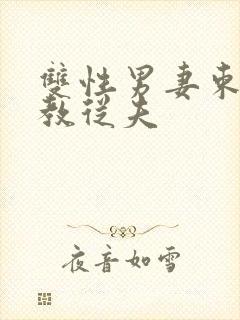 雙性男妻柬
教從夫
夜音如雪